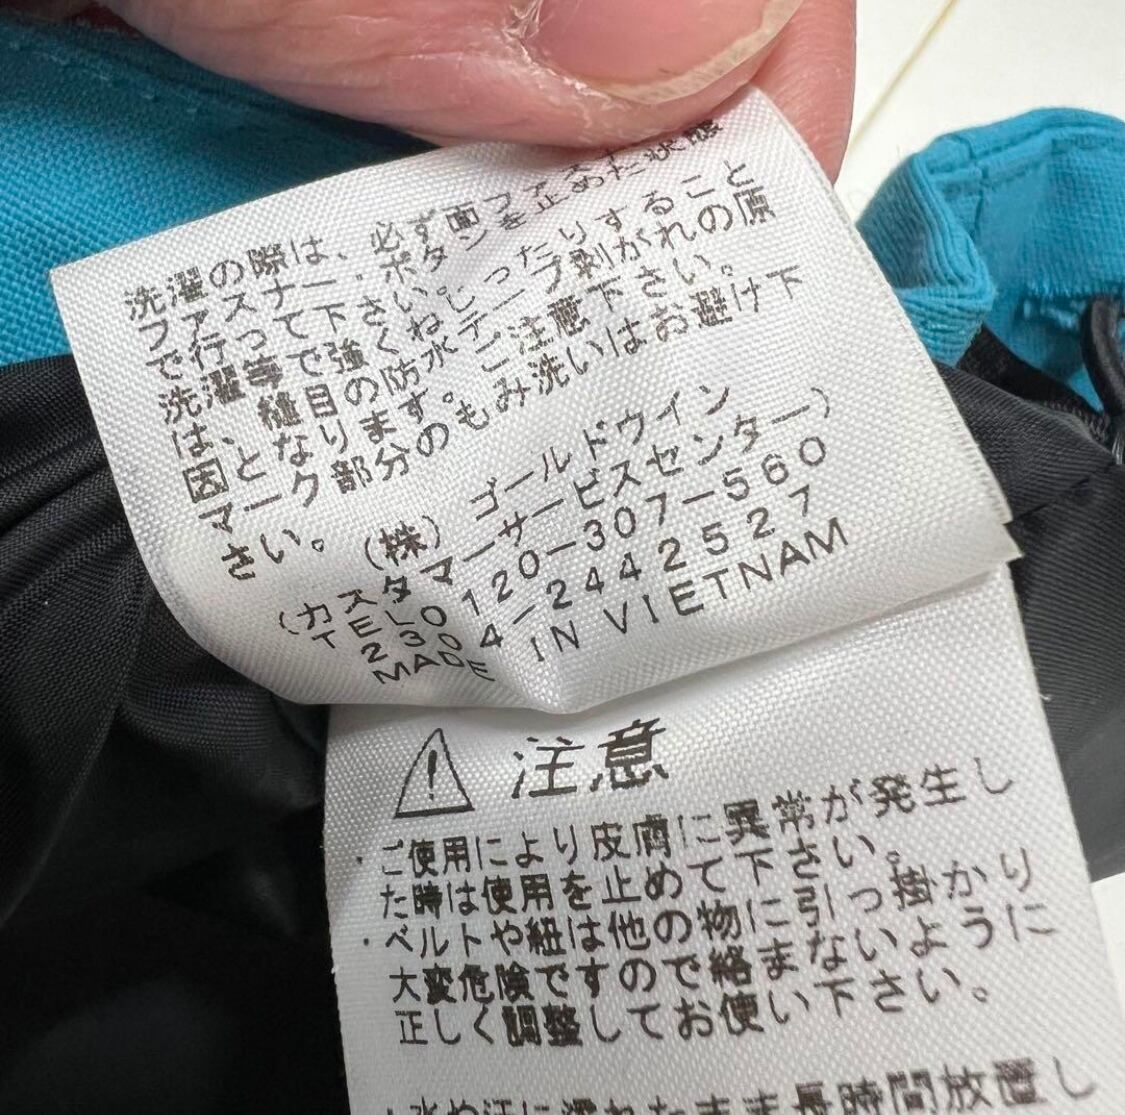 洗濯の際は、必ず面ファス
ファスナー・ボタンを止めた状態
で行って下さい。
洗濯等で強くねじったりすること
は、縫目の防水テープ剥がれの原
因となります。ご注意下さい。
マーク部分のもみ洗いはお避け下
さい。
(株) ゴールドウイン
(カスタマーサービスセンター)
TEL0120-307-560
2304-2442527
MADE IN VIETNAM
⚠ 注意
・ご使用により皮膚に異常が発生し
た時は使用を止めて下さい。
・ベルトや紐は他の物に引っ掛かり
大変危険ですので絡まないように
正しく調整してお使い下さい。
・水や汗に濡れたまま長時間放置し